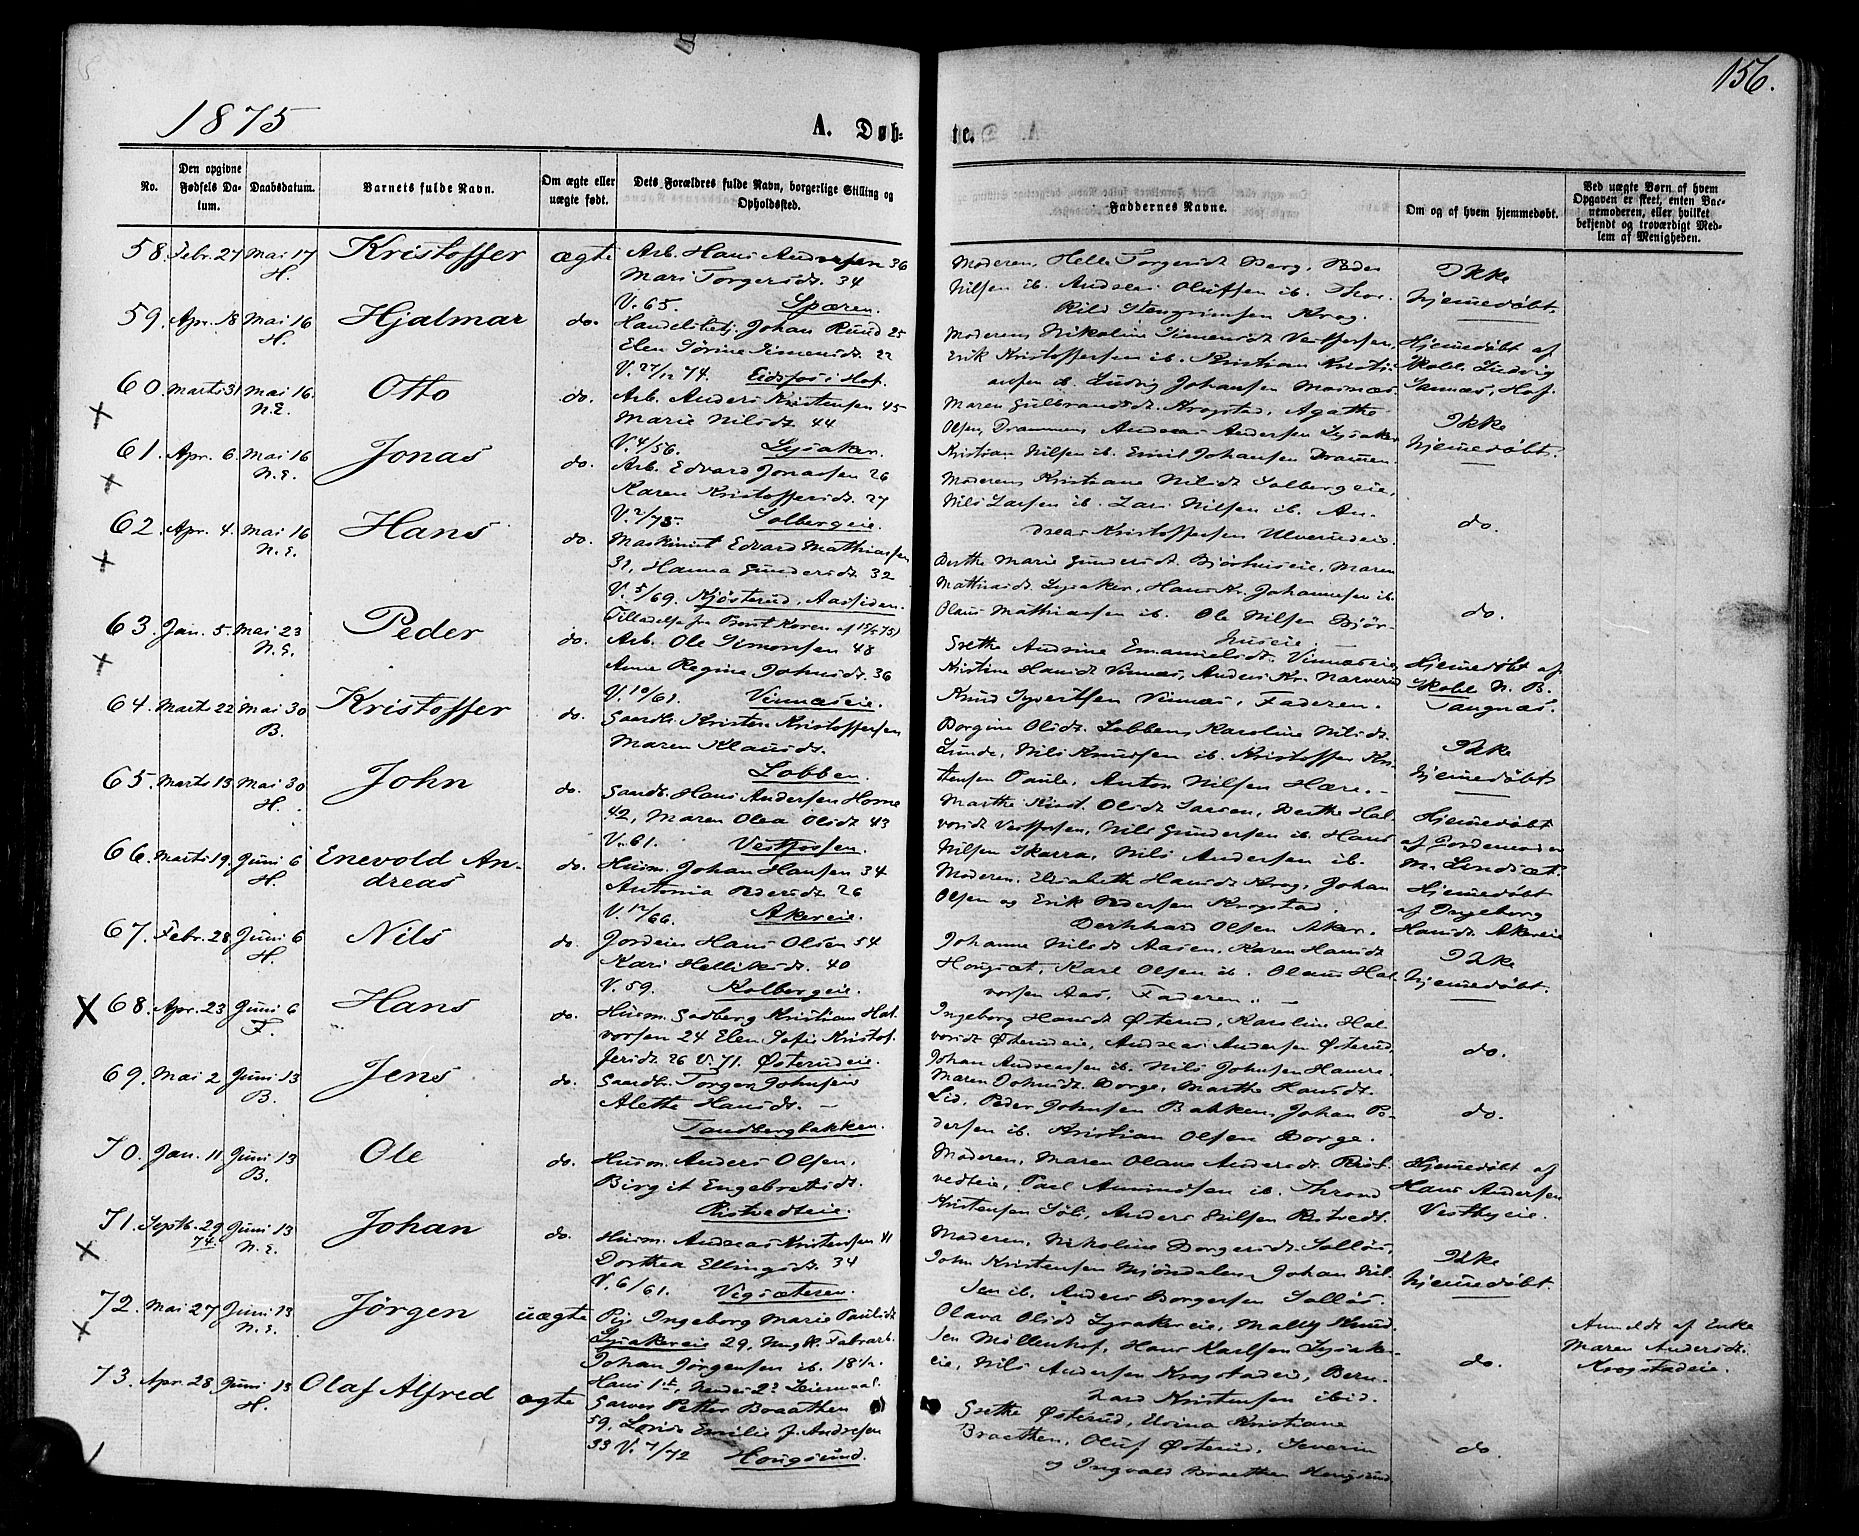 156.
1875
A. Døb-
te.
No.
Den opgivne Fødsels Da-tum.
Daabsdatum.
Barnets fulde Navn.
Om ægte eller uægte født.
Dets Forældres fulde Navn, borgerlige Stilling og Opholdssted.
Faddernes Navne.
Om og af hvem hjemmedøbt.
Ved uægte Børn af hvem Opgaven er skeet, enten Bar-nemoderen, eller hvilket bekjendt og troværdigt Med-lem af Menigheden.
58. Febr. 27 Mai 17 H. Kristoffer ægte
Arb. Hans Andersen 36
Mari Torgersdt. 34
V. 65. Spæren.
Moderen, Helle Torgersdt Berg, Peder
Nilsen ib. Andreas Oluffsen ib. Thor-
Ikke
hjemmedøbt.
59. Apr. 18 Mai 16 H. Hjalmar do.
Handelsbetj. Johan Ruud 25
Elen Sørine Simensdt. 22
V. 27/12 74. Eidsfos i Hof.
Moderen, Nikoline Simensdt Vestfossen,
Erik Kristoffersen ib. Kristian Kristi-
ansen ib. Ludvig Johansen
Hjemmedøbt af
Skolel. Ludvig
Hof.
60. Marts 31 Mai 16. N.E. Otto do.
Arb. Anders Kristensen 45
Marie Nilsdt. 44
V. 4/56. Lysaker.
Maren Gulbrandsdt. Krogstad, Agathe
Olsen, Drammen, Andreas Andersen Lysaker
Kristian Nilsen ib. Emil Johansen Dramen.
Ikke
hjemmedøbt.
61. Apr. 6. Mai 16 N.E. Jonas do.
Arb. Edvard Jonassen 26
Karen Kristoffersdt. 27
V. 2/75. Solbergeie.
Moderen, Kristiane Nilsdt Solbergeie,
Nils Larsen ib. Lars Nilsen ib. An-
dreas Kristoffersen
do.
62. Apr. 4. Mai 16 N.E. Hans do.
Maskinist Edvard Mathiassen
31, Hanna Gundersdt. 32
V. 5/69. Kjøsterud, Aassiden.
Berthe Marie Gundersdt. Bjørhuseie, Maren
Mathiasdt Lysaker, Hans Kr. Johannesen ib.
Olaus Mathiassen ib. Ole Nilsen Bjør-
huseie.
do.
63. Jan. 5. Mai 23 N.E. Peder do.
Arb. Ole Simonsen 48
Anne Regine Johnsdt. 36
V. 10/61. Vinnæseie.
Grethe Andrine Emanuelsdt. Vinnæseie,
Kristine Hansdt Vinnæs, Anders Kr. Narverud
Knud Syvertsen Vinnæs, Faderen.
Hjemmedøbt af
Skolel. N. B.
Tangnæs.
64. Marts 22 Mai 30 B. Kristoffer do.
Gaardbr. Kristen Kristoffersen
Maren Klausdt.
Lobben.
Borgine Olsdt. Lobben, Karoline Nilsdt.
Lunde, Nils Knudsen ib. Kristoffer Kri-
stensen Anton Nilsen Hære.
Ikke
hjemmedøbt
65. Marts 13 Mai 30 H. John do.
Gaardb. Hans Andersen Horne
42, Maren Olea Olsdt 43
V. 61. Vestfossen.
Olsdt Berthe Hal-
vorsdt Vestfossen, Nils Gundersen ib. Hans
Nilsen Skarra, Nils Andersen ib.
Hjemmedøbt
af Jordemoder
66. Marts 19. Juni 6 H. Enevold An-
dreas do.
Husm. Johan Hansen 34
Antonia Pedersdt 26
V. 12/66. Akereie.
Moderen, Elisabeth Hansdt Krog, Johan
Olsen og Erik Pedersen Krogstad.
Olsen Aker.
Hjemmedøbt
af Ingeborg
Hansdt Akereie
67. Febr. 28 Juni 6 H. Nils do.
Jordeier Hans Olsen 54
Kari Helliksdt. 40
V. 59. Kolbergeie.
Johanne Nilsdt Aasen, Karen Hansdt
Hougsæt, Karl Olsen ib. Olaus Hal-
vorsen Aas, Faderen.
Ikke
hjemmedøbt.
68. Apr. 23 Juni 6 F. Hans do.
Husm. Kristian Hal-
vorsen 24 Elen Sofie Kristof-
fersdt 26 V. 71. Østerudeie.
Ingeborg Hansdt Østerud, Karoline Hal-
vorsdt Østerudeie, Andreas Andersen Østerud,
Johan Andreassen ib. Nils Johnsen
do.
69. Mai 2 Juni 13 B. Jens do.
Gaardb. Torger Johnsen
Alette Hansdt.
Sandbergbakken.
Maren Johnsdt. Borge, Marthe Hansdt
Lid, Peder Johnsen Bakken, Johan Pe-
dersen ib. Kristian Olsen Borge.
do.
70. Jan. 11 Juni 13 B. Ole do.
Husm. Anders Olsen.
Birgit Engebretsdt.
Ristvedteie.
Moderen, Maren Olava Andersdt. Rist-
vedteie, Paul Amundsen ib. Thrond
Kristensen Anders Nilsen Ristvedt.
Hjemmedøbt af
Hans Andersen
Vestbyeie.
71. Septb. 29 74. Juni 13 N.E. Johan do.
Husm. Andreas Kristensen 41
Dorthea Ellingsdt. 34
V. 6/61. Vigsæteren.
Moderen, Nikoline Borgersdt. Solløs,
John Kristensen Mjøndalen, Johan Nil-
sen ib. Anders Borgersen Solløs.
Ikke
hjemmedøbt.
72. Mai 27 Juni 13 N.E. Jørgen uægte
Pig. Ingeborg Marie Paulsdt
Lysakereie 29, Ungk. Fabrarb.
Johan Jørgensen ib. 18½.
Hans 1st, hendes 2d Leiermaal.
Olava Olsdt Lysakereie, Mally Knud-
sen Møllenhof, Hans Karlsen Lysaker-
eie, Nils Andersen Krogstadeie, Bern-
hard Kristensen ibid.
do.
Anmeldt af Enke
Maren Andersdt.
Krogstadeie.
73. Apr. 28 Juni 13 H. Olaf Alfred ægte
Garver Petter Braathen
59, Lovise Emilie f. Andresen
33 V. 7/72 Hougsund.
Grethe Østerud, Kristiane
Braathen, Oluf Østerud, Severin
og Ingvald Braathen Hougsund.
do